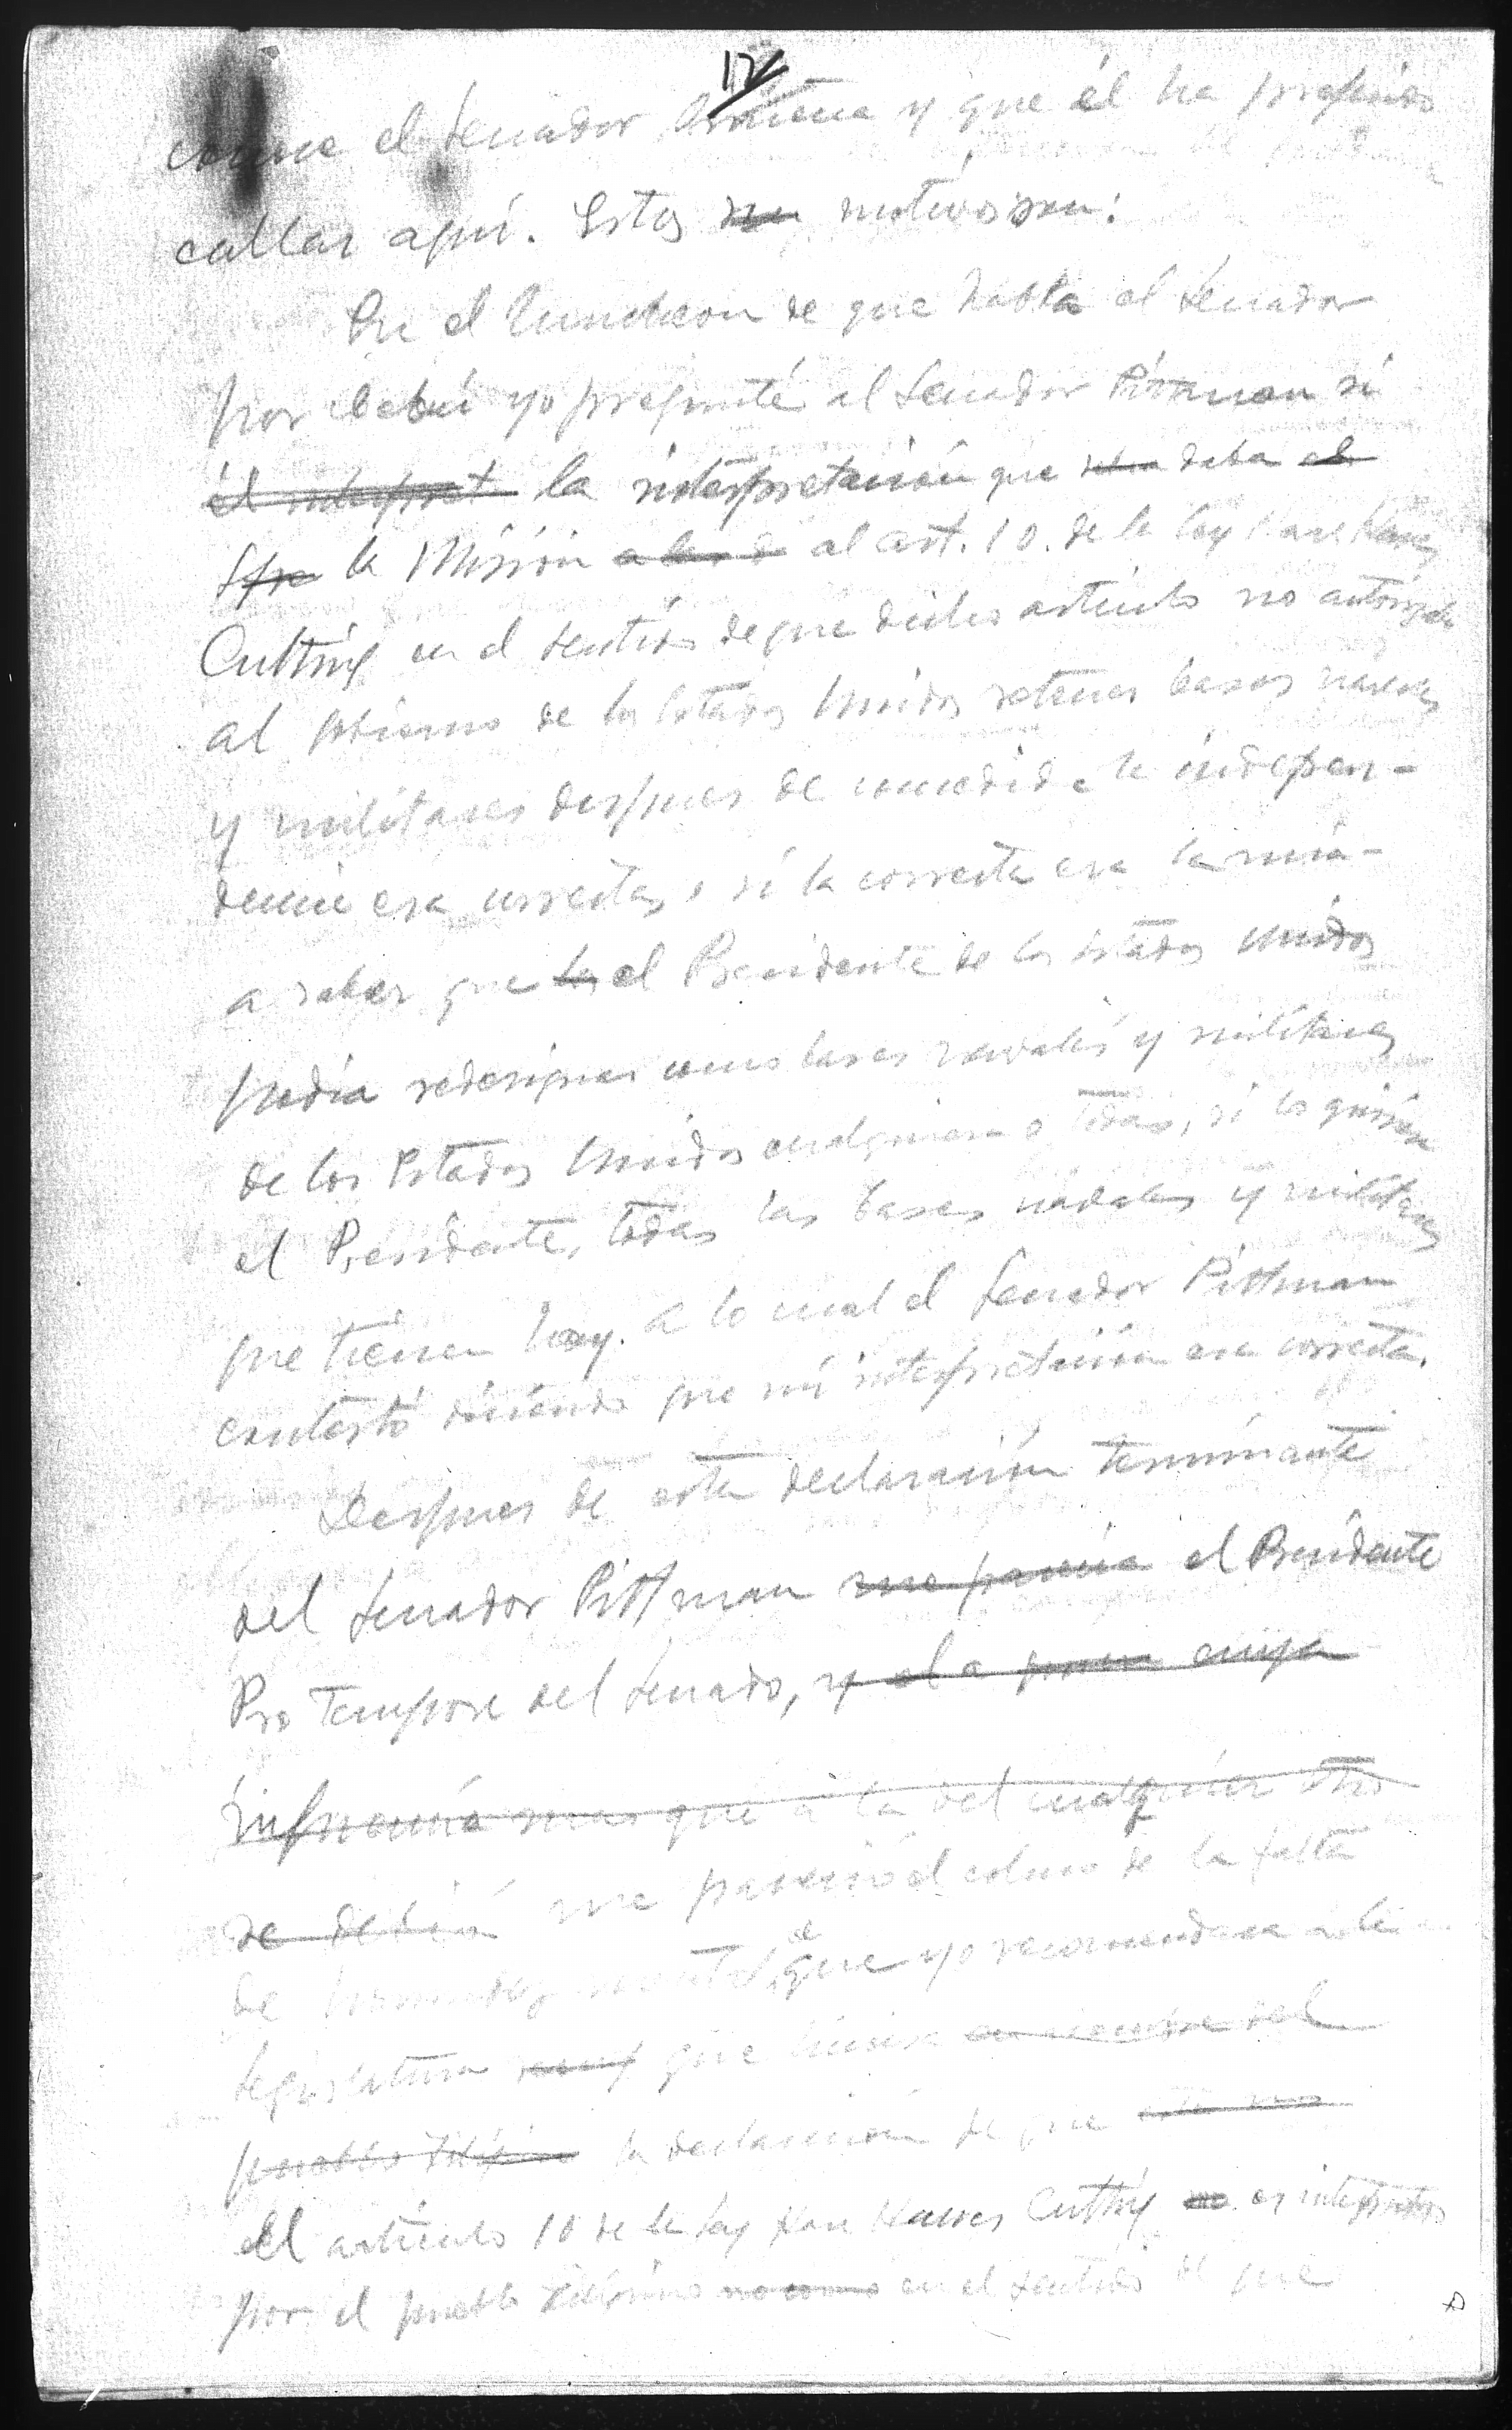 12
conoce el Senador Osmeña y que él ha preferido
callar aquí. Estos motivos son:
En el luncheon de que habla el Senador
por Cebú yo pregunté al Senador Pittman si
él interpret la interpretación que daba el
Spe la Misión al art. 10. de la ley Hare Hawes
Cutting en el sentido de que dicho artículo no autorizaba
al Gobierno de los Estados Unidos retener bases navales
y militares despues de concedida la indepen-
dencia era correcta, o si la correcta era la mia-
a saber que los el Presidente de los Estados Unidos
podia redesignar como bases navales y militares
de los Estados Unidos cualquiera o todas, si lo quisiera
el Presidente, todas las bases navales y militares
que tienen hoy. a lo cual el Senador Pittman
contestó diciendo que mi interpretación era correcta.
Despues de esta declaración terminante
del Senador Pittman me parecía el Presidente
Pro Tempore del Senado, y el a cuya
mas que a la del cualquier otro
se debia me pareció el colmo de la falta
de el que yo recomendara a la
Legislatura que hiciera en nombre del
pueblo Filipino la declaración de que este no
El artículo 10 de la ley Hare Hawes Cutting no es interpretado
por el pueblo Filipino no como en el sentido de que